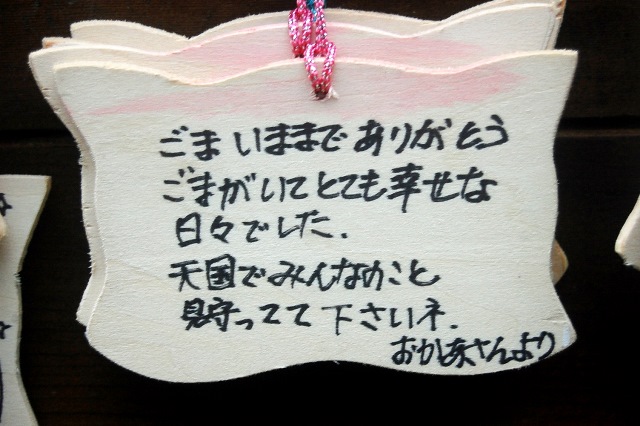 ごま いままで ありがとう
ごまがいてとても幸せな
日々でした.
天国でみんなのこと
見守ってて下さいネ.
おかあさんより